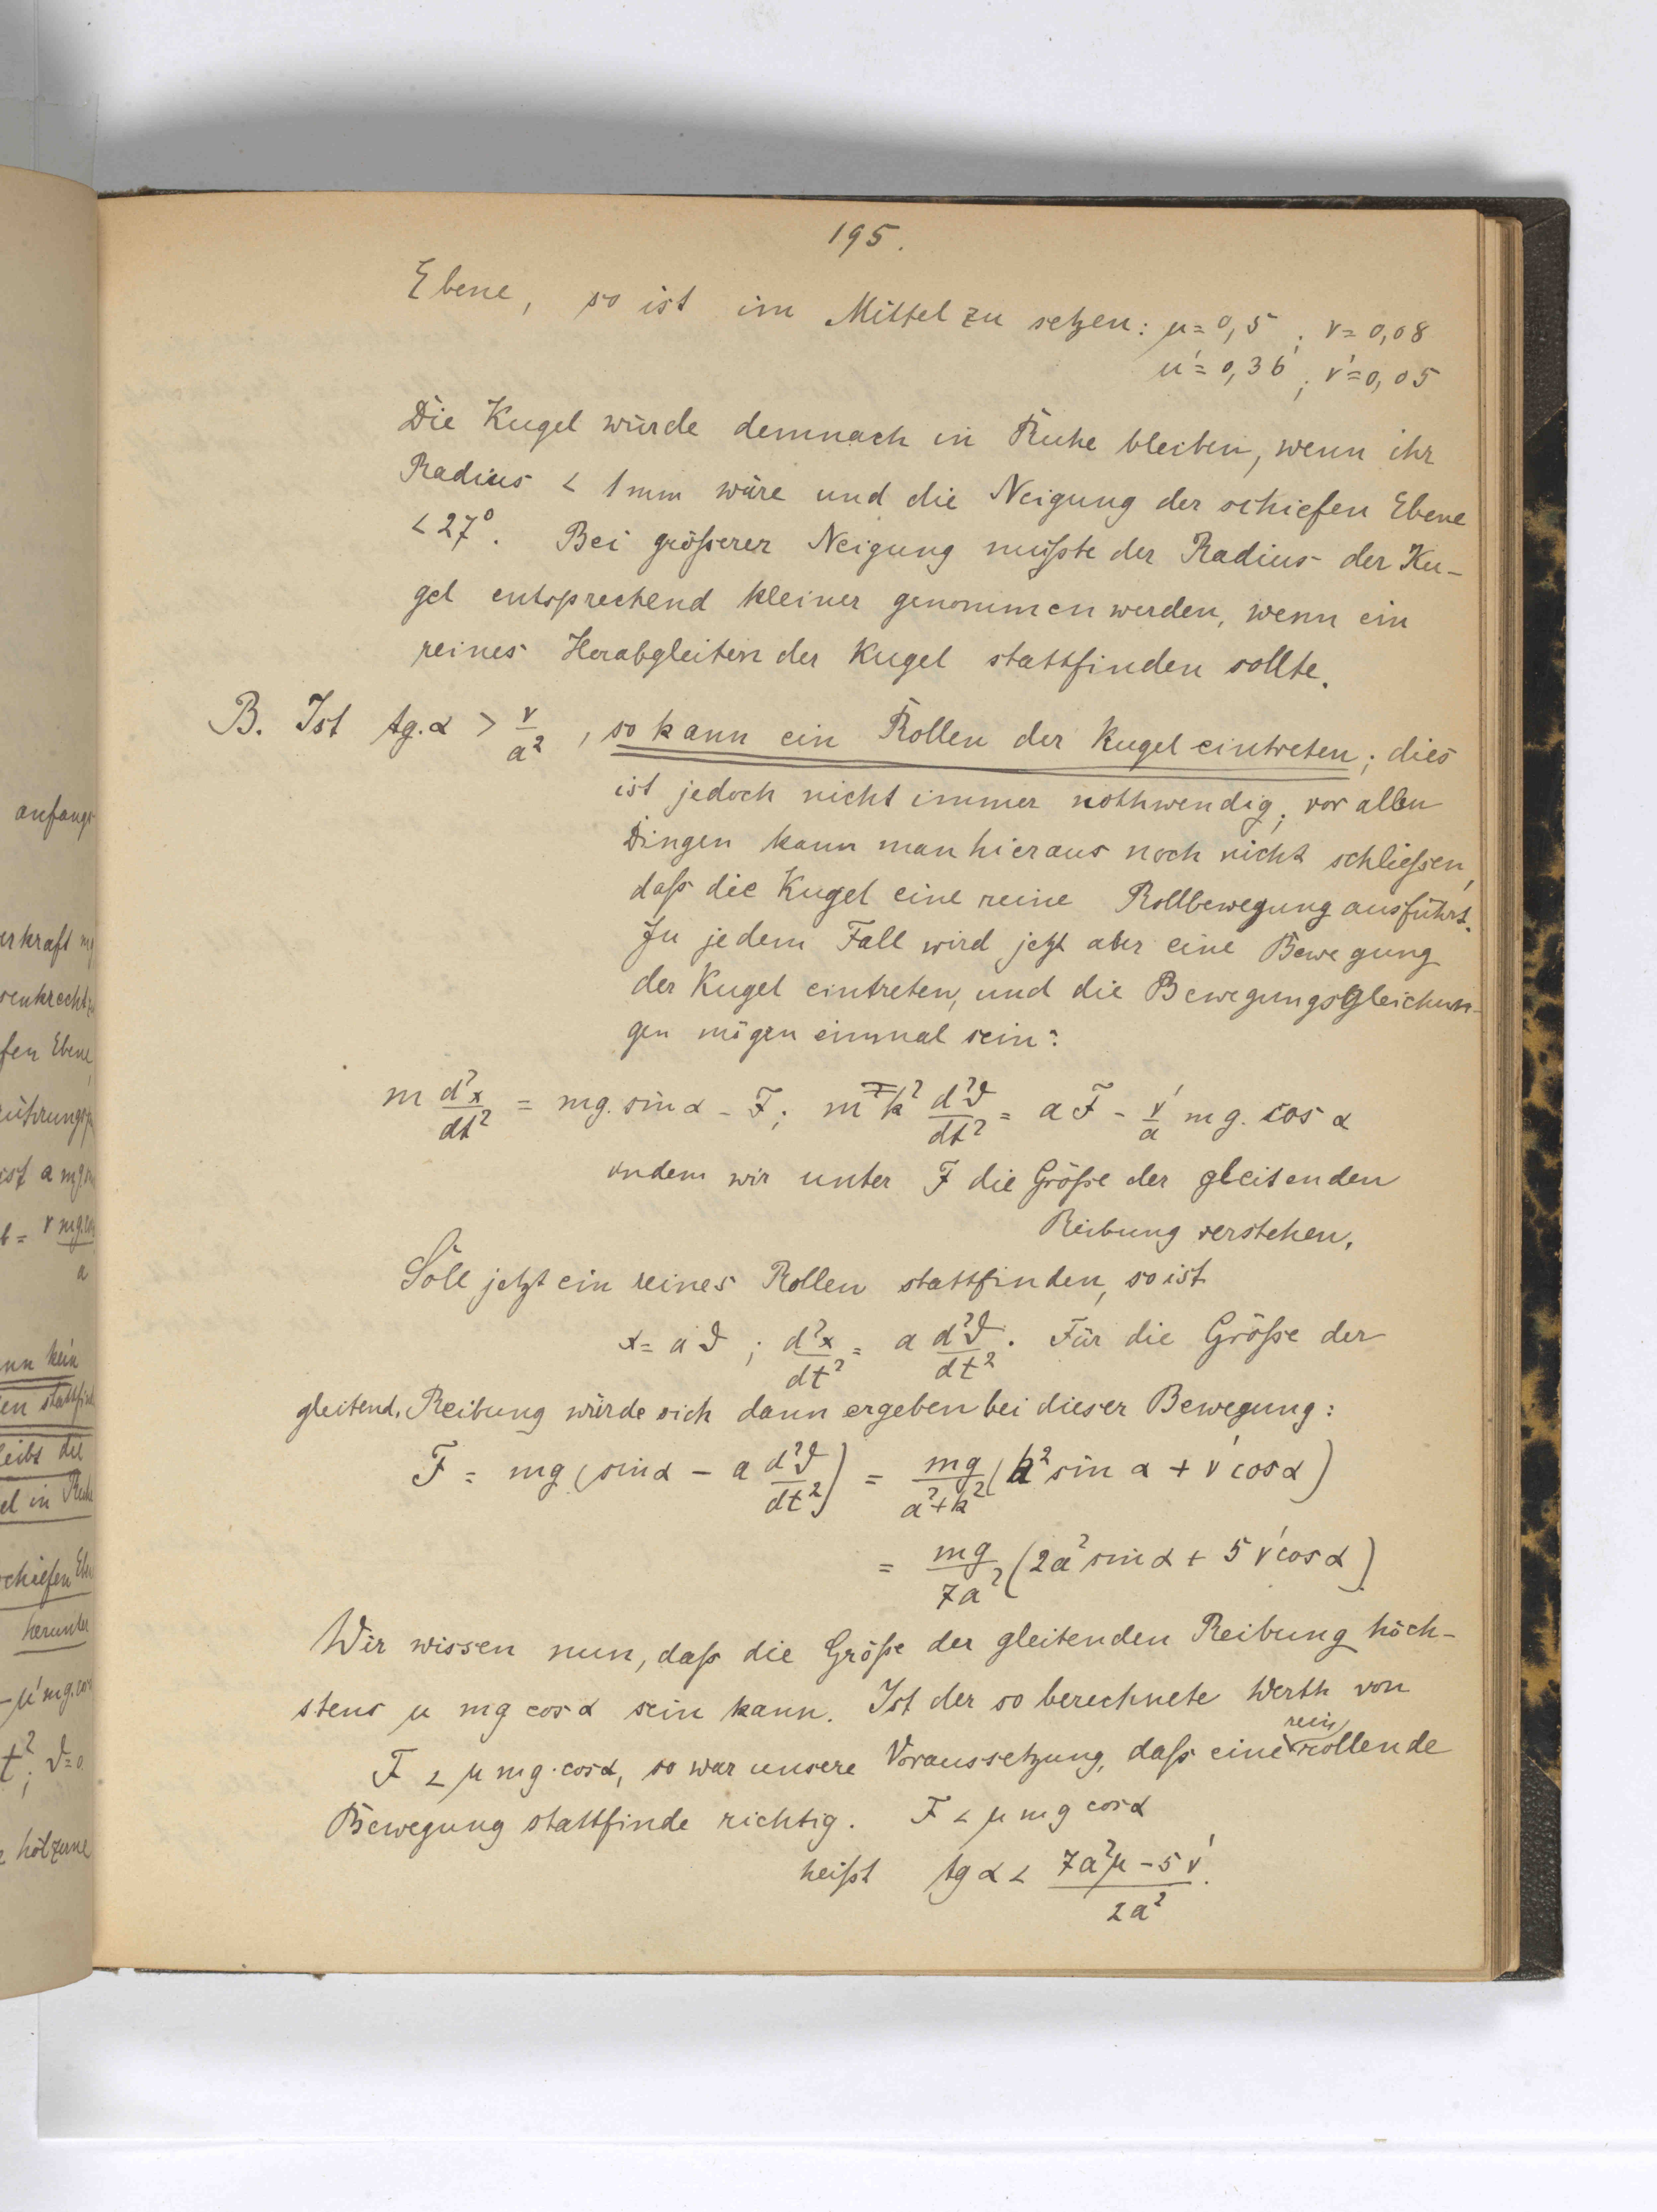 195.
Ebene, so ist im Mittel zu setzen: μ = 0,5 ; ν = 0,08
μ' = 0,36 ; ν' = 0,05
Die Kugel würde demnach in Ruhe bleiben, wenn ihr
Radius < 1 mm wäre und die Neigung der schiefen Ebene
< 27°. Bei größerer Neigung müßte der Radius der Ku-
gel entsprechend kleiner genommen werden, wenn ein
reines Herabgleiten der Kugel stattfinden sollte.
B. Ist tg. α > ν/a², so kann ein Rollen der Kugel eintreten; dies
ist jedoch nicht immer nothwendig; vor allen
Dingen kann man hieraus noch nicht schließen,
daß die Kugel eine reine Rollbewegung ausführt.
In jedem Fall wird jetzt aber eine Bewegung
der Kugel eintreten, und die Bewegungsgleichun-
gen mögen einmal sein:
m d²x/dt² = mg. sin α - F; m k² d²ϑ/dt² = a F - ν'/a mg. cos α
indem wir unter F die Größe der gleitenden
Reibung verstehen.
Soll jetzt ein reines Rollen stattfinden, so ist
x = a ϑ ; d²x/dt² = a d²ϑ/dt². Für die Größe der
gleitend. Reibung würde sich dann ergeben bei dieser Bewegung:
F = mg (sin α - a d²ϑ/dt²) = mg/(a²+k²) (k² sin α + ν' cos α)
= mg/7a² (2a² sin α + 5 ν' cos α)
Wir wissen nun, daß die Größe der gleitenden Reibung höch-
stens μ mg cos α sein kann. Ist der so berechnete Werth von
F < μ mg. cos α, so war unsere Voraussetzung, daß eine rein rollende
Bewegung stattfinde richtig. F < μ mg cos α
heißt tg α < (7a²μ - 5 ν')/2a².
anfangs
erkraft mg
senkrecht
fen Ebene
ist a mg
kein
eibt die
el in Ruhe
schiefen Eben
herunter
- μ' mg. cos
t²; ϑ = 0
hölzerne